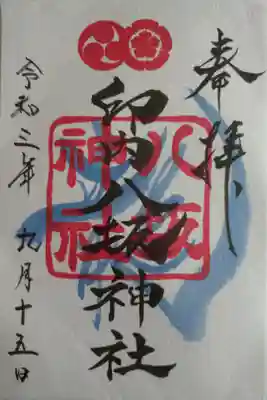 奉拝
印内八坂神社
八坂
神社
令和三年 九月十五日